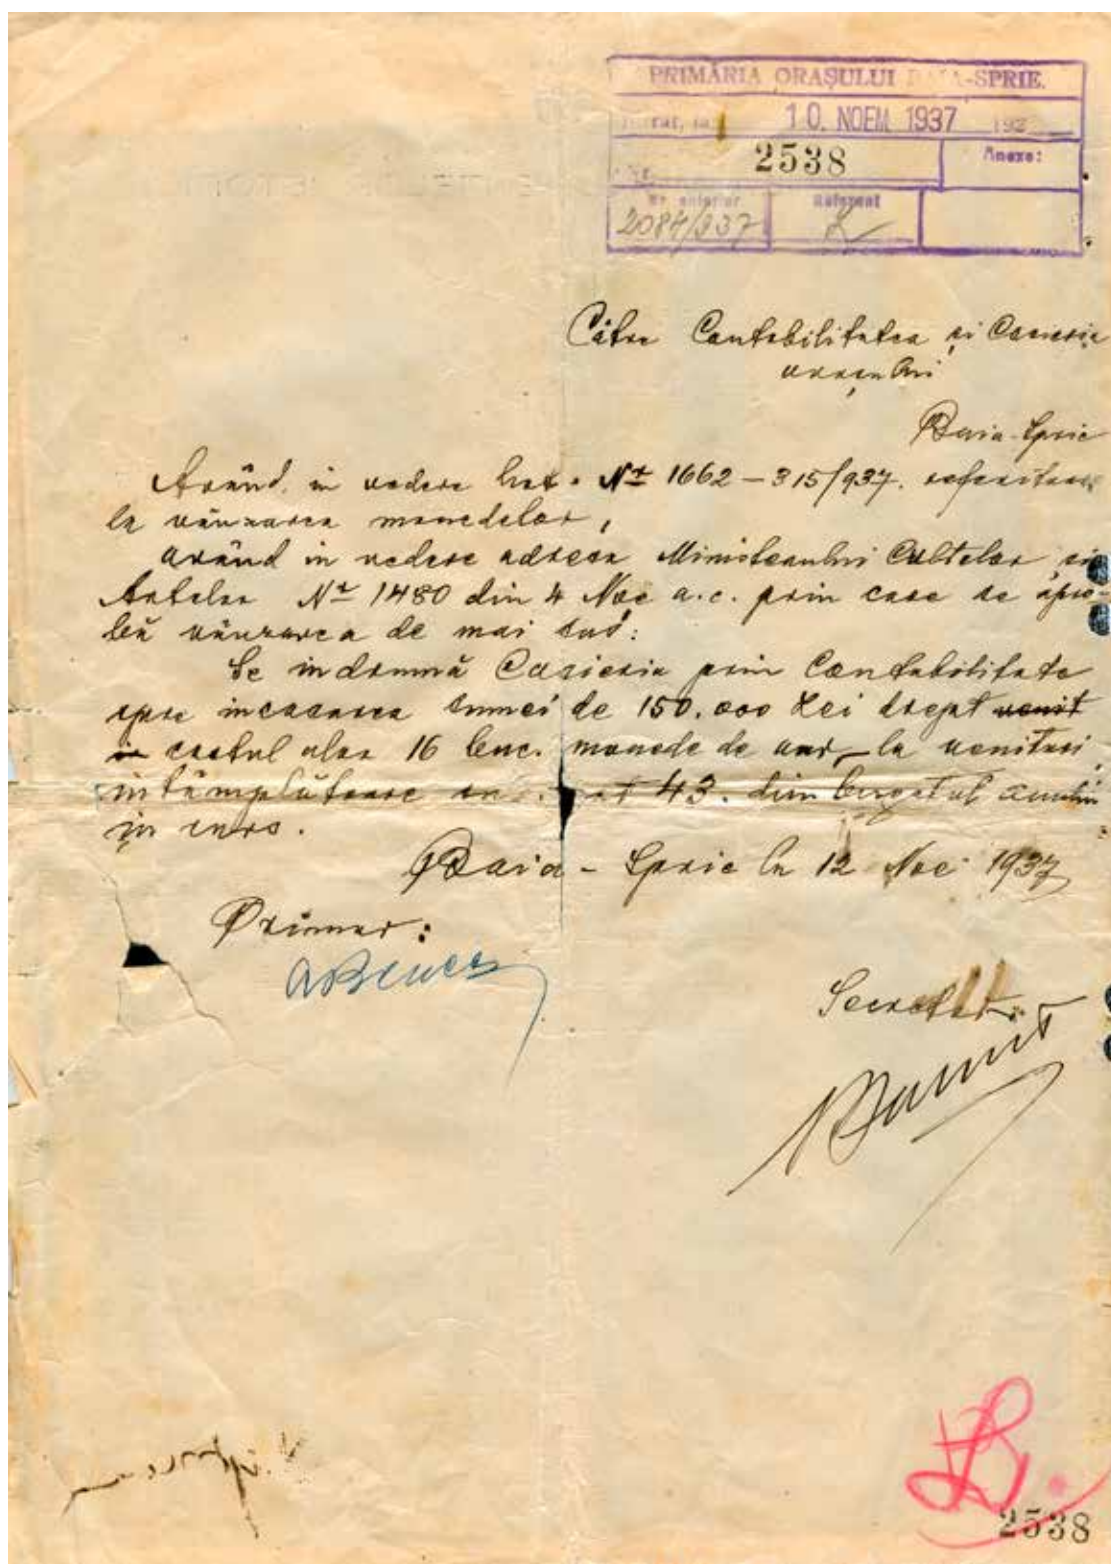 PRIMĂRIA ORAȘULUI BAIA-SPRIE.
10. NOEM. 1937 192
Nr. 2538 Anexe:
Nr. anterior Referent
2084/937
Către Contabilitatea și Casieria
orașului
Baia-Sprie
Având in vedere hot. Nr 1662 – 315/937. referitoare
la vânzarea monedelor,
având in vedere adresa Ministerului Cultelor și
Artelor Nr 1480 din 4 Noe a.c. prin care se apro-
bă vânzarea de mai sus:
Se indrumă Casieria prin Contabilitate
spre incasarea sumei de 150.000 Lei drept venit
in costul alor 16 buc. monede de aur la venituri
intâmplătoare 43. din bugetul anului
in curs.
Baia-Sprie la 12 Noe 1937
Primar:
Secretar:
2538